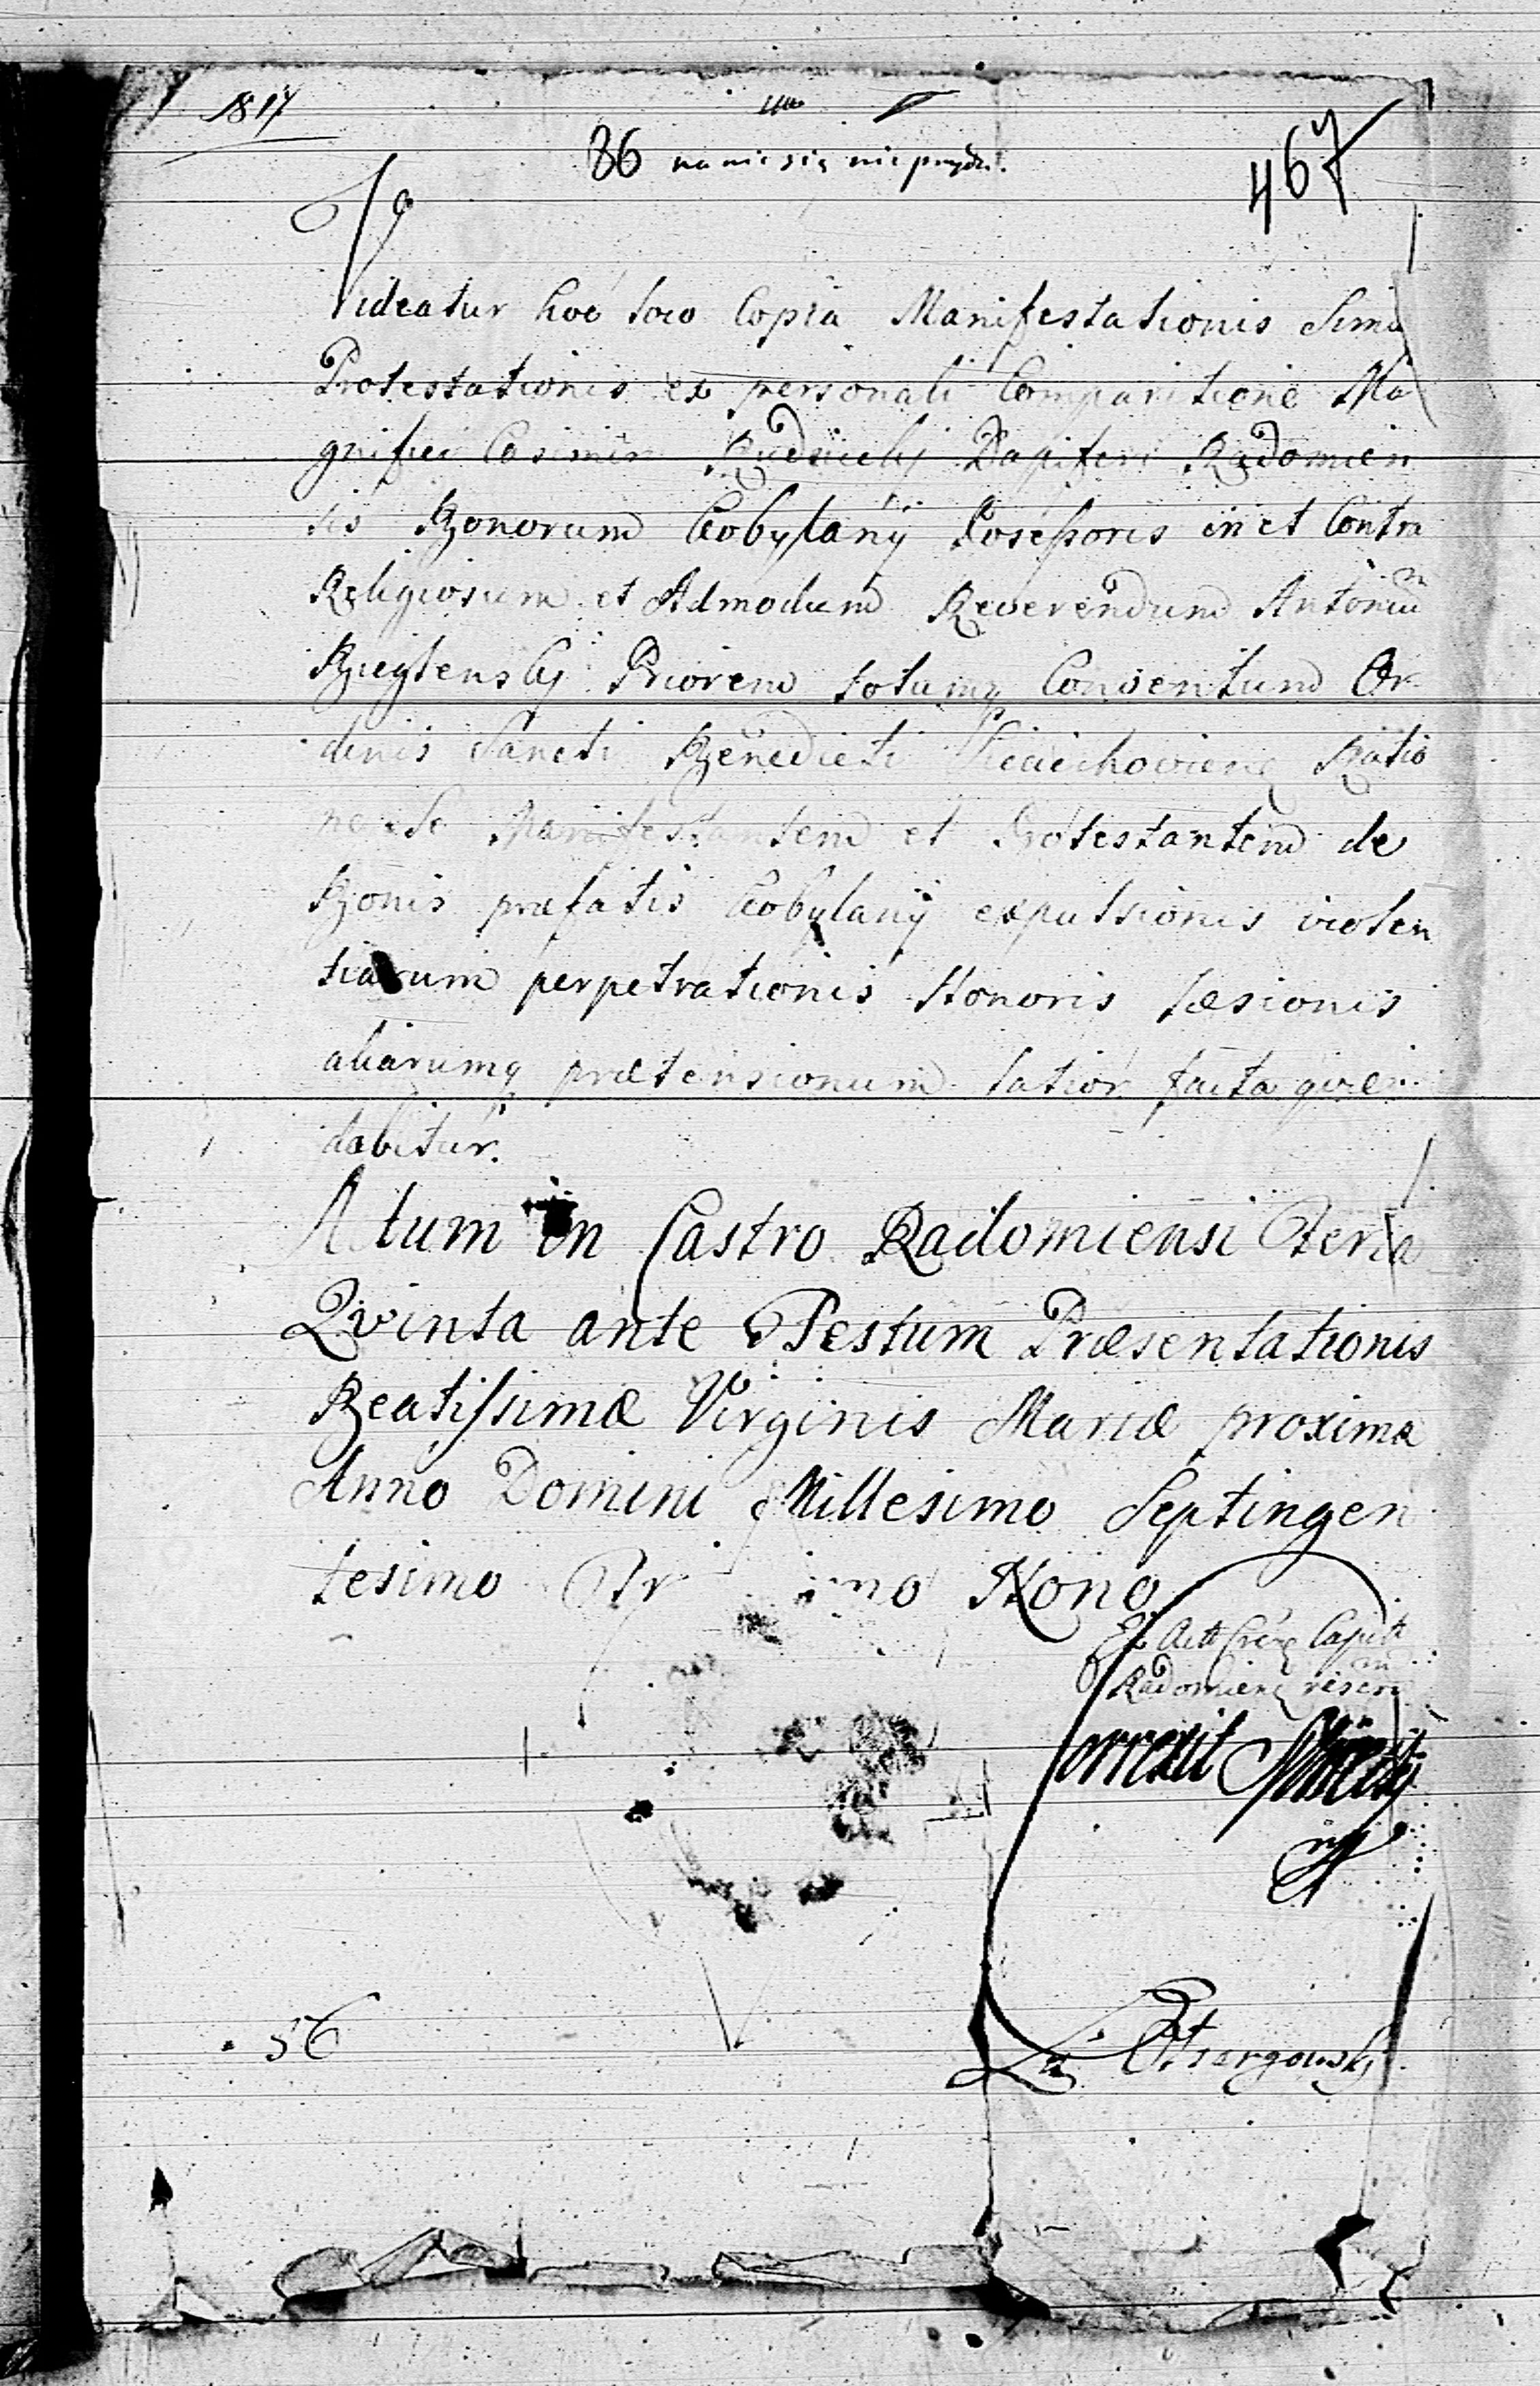 1817
86 na nic się nie przyda.
467
Videatur hoc loco Copia Manifestationis Simul
Protestationis ex personali Comparitione Ma
gnifici Casimiri Rudnicki Dapiferi Radomien
sis Bonorum Kobylany Possessoris in et Contra
Religiosum et Admodum Reverendum Antoniū
Priorem totumq Conventum Or
dinis Sancti Benedicti Sieciechoviens Ratio
ne se Manifestantem et Protestantem de
Bonis præfatis Kobylany expulsionis violen
tiarum perpetrationis Honoris læsionis
aliarumq prætensionum latior facta
dabitur.
Actum in Castro Radomiensi Feria
Qvinta ante Festum Præsentationis
Beatissimæ Virginis Mariæ proxima
Anno Domini Millesimo Septingen
tesimo Nono
Ex Actis Capit
Radomiens
Correxit
mp
56